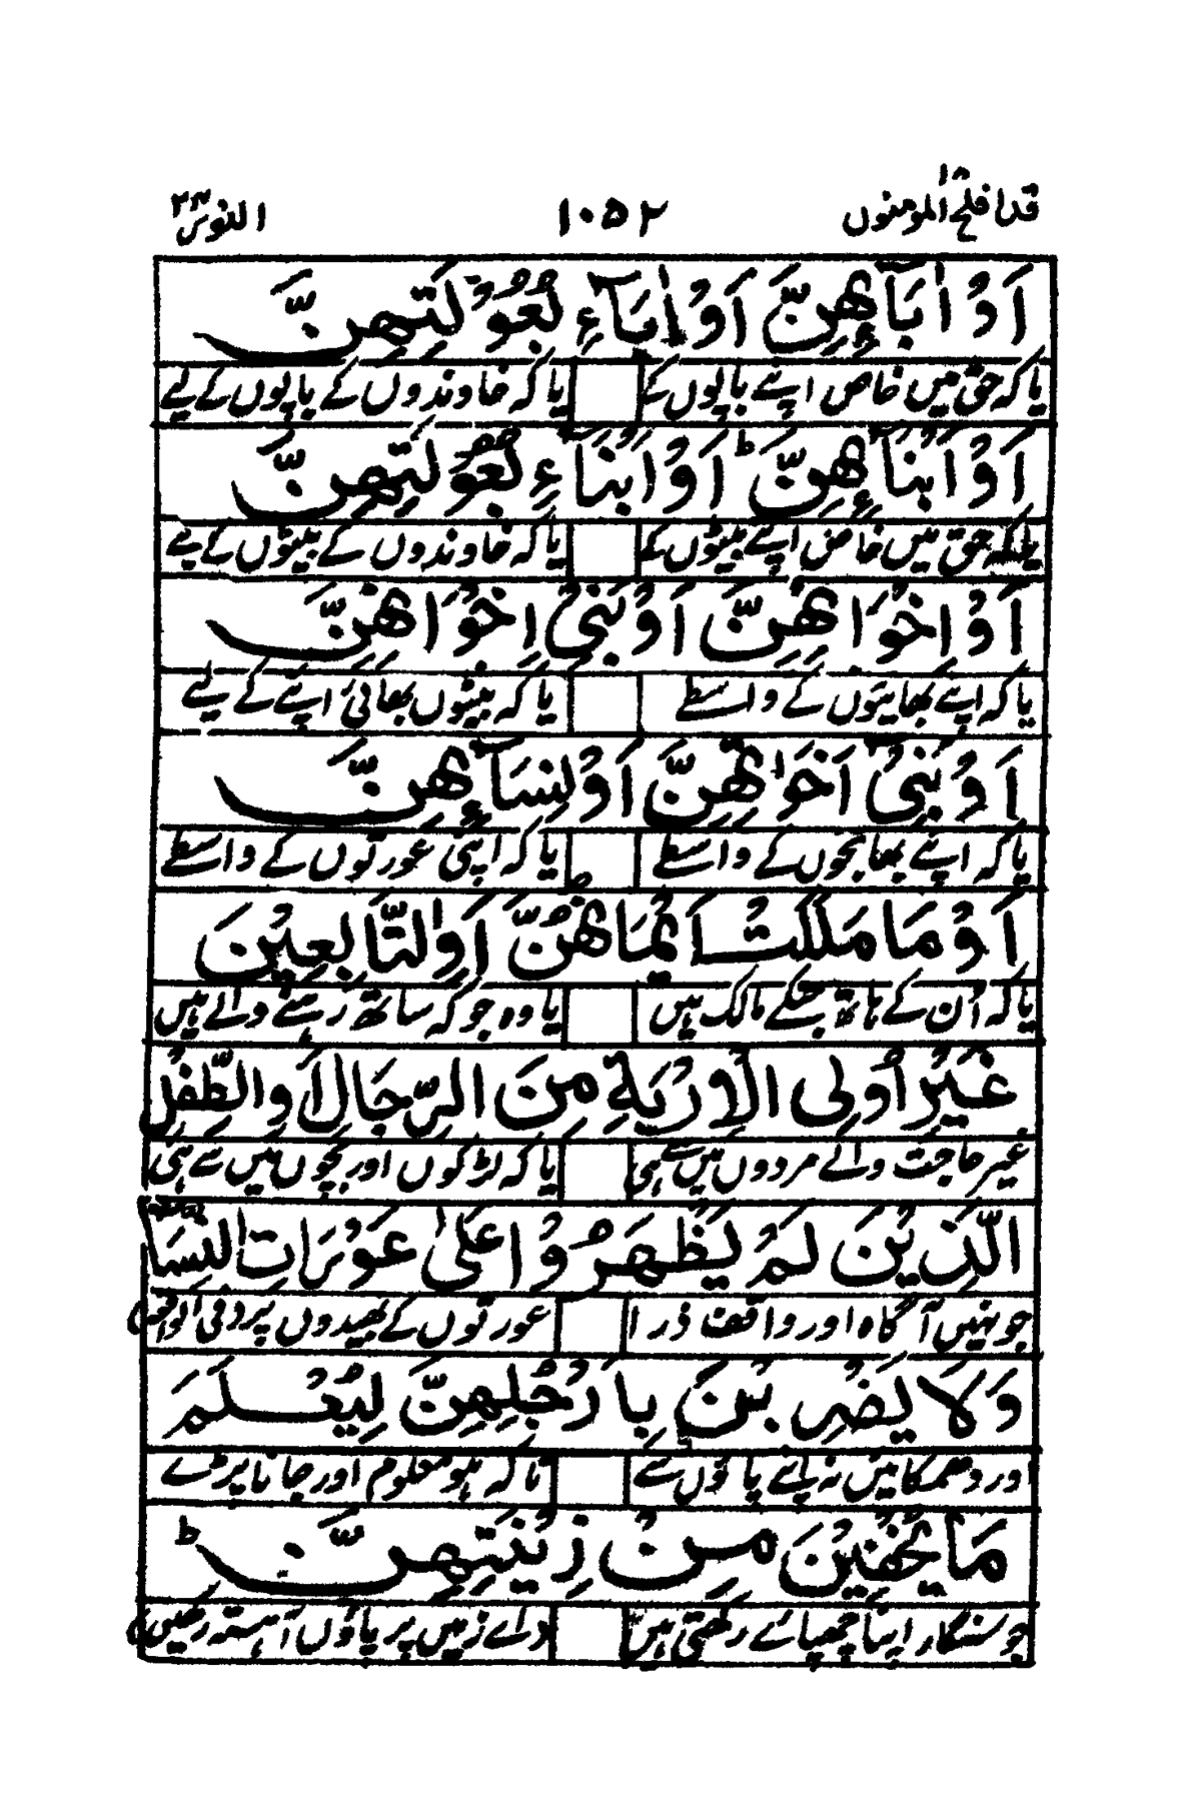 قد افلح المؤمنون ۱۸ ۱۰۵۲ النور ۲۴
اَوْ اٰبَآئِهِنَّ اَوْ اٰبَآءِ بُعُوْلَتِهِنَّ
یا کہ حق میں خاص اپنے باپوں کے یا کہ خاوندوں کے باپوں کے لیے
اَوْ اَبْنَآئِهِنَّ ؕ اَوْ اَبْنَآءِ بُعُوْلَتِهِنَّ
یا کہ حق میں خاص اپنے بیٹوں کے یا کہ خاوندوں کے بیٹوں کے لیے
اَوْ اِخْوَانِهِنَّ اَوْ بَنِیْۤ اِخْوَانِهِنَّ
یا کہ اپنے بھائیوں کے واسطے یا کہ بیٹوں بھائی اپنے کے لیے
اَوْ بَنِیْۤ اَخَوٰتِهِنَّ اَوْ نِسَآئِهِنَّ
یا کہ اپنے بھانجوں کے واسطے یا کہ اپنی عورتوں کے واسطے
اَوْ مَا مَلَكَتْ اَیْمَانُهُنَّ اَوِ التّٰبِعِیْنَ
یا کہ اُن کے ہاتھ جسکے مالک ہیں یا وہ جو کہ ساتھ رہنے والے ہیں
غَیْرِ اُولِی الْاِرْبَةِ مِنَ الرِّجَالِ اَوِ الطِّفْلِ
غیر حاجت والے مردوں میں سے ہی یا کہ لڑکوں اور بچوں میں سے ہی
الَّذِیْنَ لَمْ یَظْهَرُوْا عَلٰی عَوْرٰتِ النِّسَآ
جو نہیں آگاہ اور واقف ذرا عورتوں کے بھیدوں پر
وَلَا یَضْرِبْنَ بِاَرْجُلِهِنَّ لِیُعْلَمَ
اور دھمکائیں نہ اپنے پاؤں سے تا کہ ہو معلوم اور جانا پڑے
مَا یُخْفِیْنَ مِنْ زِیْنَتِهِنَّ ؕ
جو سنگار اپنا چھپائے رکھتی ہیں زمیں پر پاؤں آہستہ رکھیں